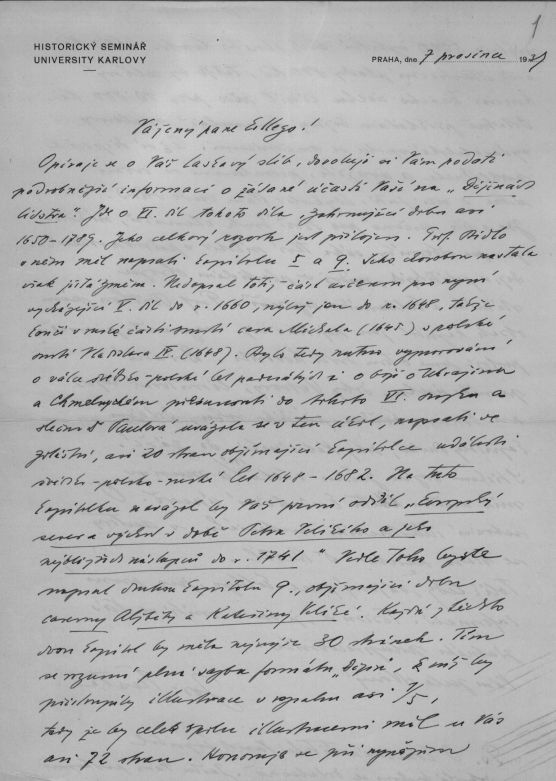 1
HISTORICKÝ SEMINÁŘ
UNIVERSITY KARLOVY
PRAHA, dne 7 prosince 193
Vážený pane kollego!
Opíraje se o Váš laskavý slib, dovoluji si Vám podati
podrobnější informaci o žádané účasti Vaší na „Dějinách
lidstva". Jde o VI. díl tohoto díla, zahrnující dobu asi
1650-1789. Jeho celkový rozvrh jest přiložen. Prof. Bidlo
v něm měl napsati kapitolu 5 a 9. Jeho chorobou nastala
však jistá změna. Nedopsal totiž část určenou pro nyní
vycházející V. díl do r. 1660, nýbrž jen do r. 1648, takže
končí v ruské části smrtí cara Michala (1645) v polské
smrtí Vladislava IV. (1648). Bylo tedy nutno vypravování
o válce švédsko-polské let padesátých i o boji o Ukrajinu
a Chmelnyckém přesunouti do tohoto VI. svazku a
slečna Dr Paulová uvázala se v ten účel, napsati ve
zvláštní, asi 20 stran objímající kapitolce události
švédsko-polsko-ruské let 1648-1682. Na tuto
kapitolku navázal by Váš první oddíl „Evropský
sever a východ v době Petra Velikého a jeho
nejbližších nástupců do r. 1741" Vedle toho byste
napsal druhou kapitolu 9., objímající dobu
carevny Alžběty a Kateřiny Veliké. Každá z těchto
dvou kapitol by měla nejvýše 30 stránek. Tím
se rozumí plná sazba formátu „Dějin", k níž by
přistoupily illustrace v rozsahu asi 1/5,
tedy že by celek spolu s illustracemi měl u Vás
asi 72 stran. Honoruje se při nynějším